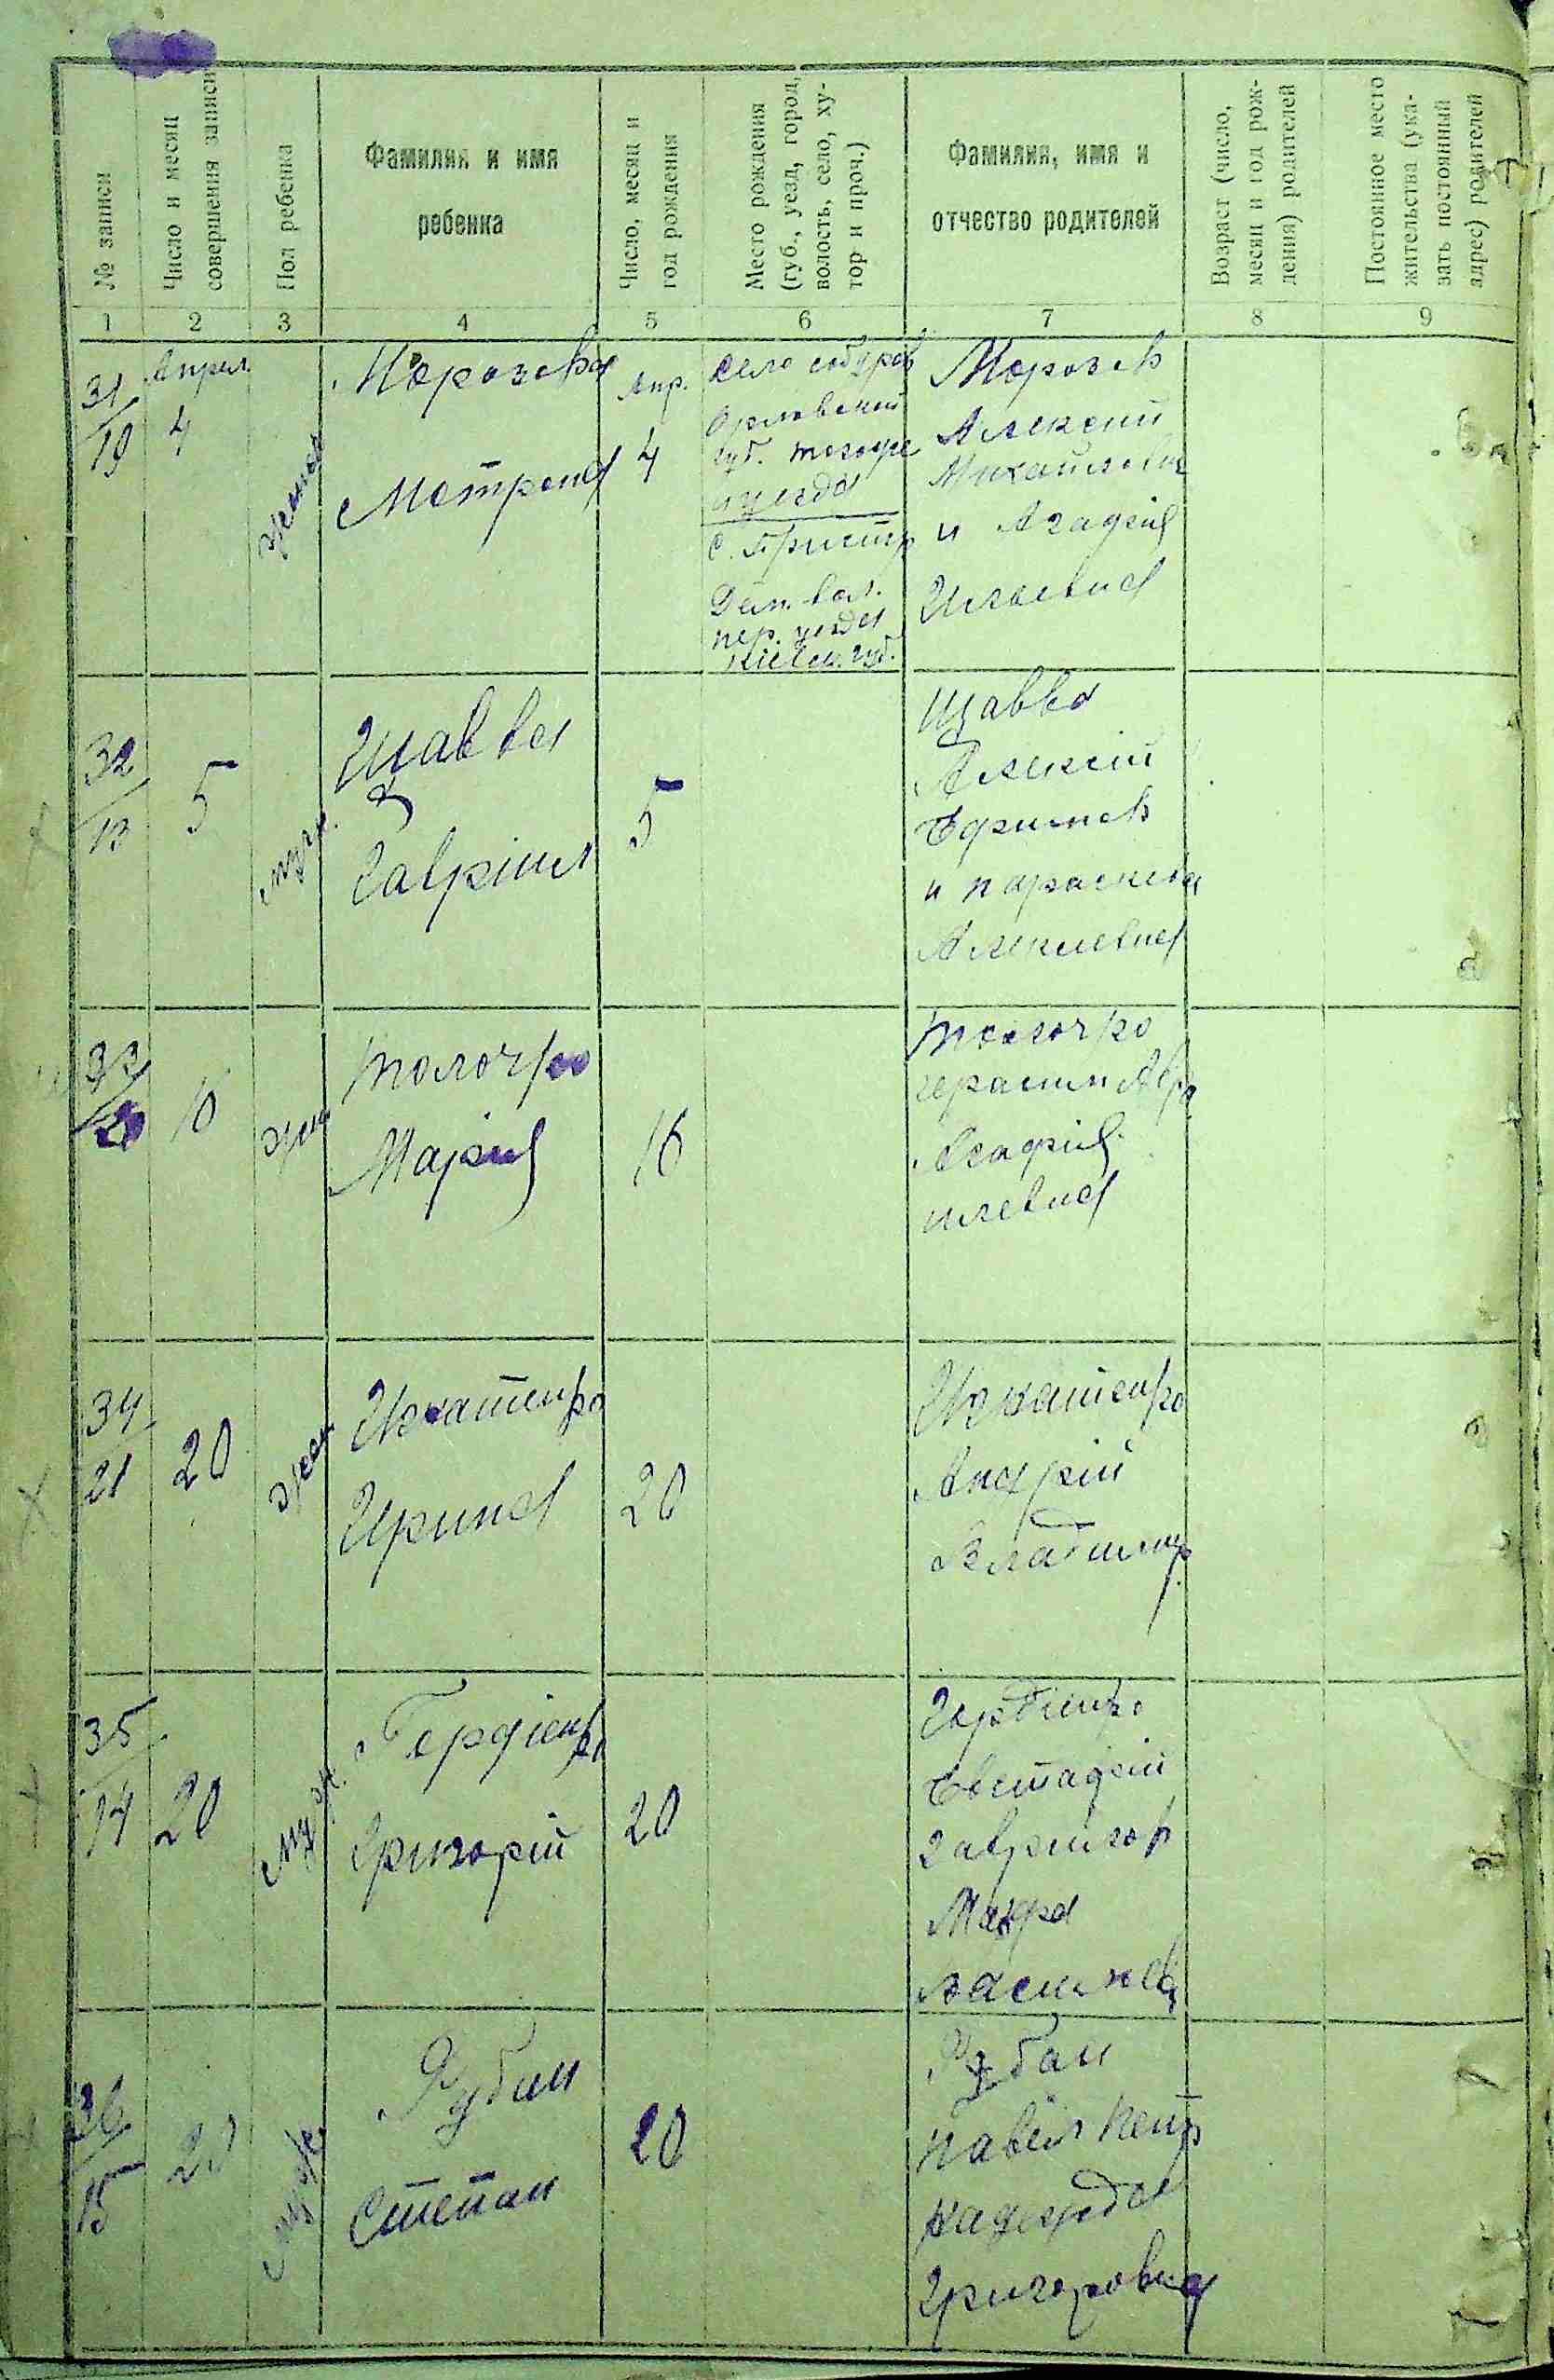 № записи
Число и месяц
совершения записи
Пол ребенка
Фамилия и имя
ребенка
Число, месяц и
год рождения
Место рождения
(губ., уезд, город,
волость, село, ху-
тор и проч.)
Фамилия, имя и
отчество родителей
Возраст (число,
месяц и год рож-
дения) родителей
Постоянное место
жительства (ука-
зать постоянный
адрес) родителей
1 2 3 4 5 6 7 8 9
31
19
Апрел
4
Морозова
Мотрона
Апр.
4
Село
Орловской
губ.
уезда
С.
вол.
пер. уезда
Киевск. губ.
Морозов
Алексий
Михайлович
и Агафия
Илаевна
32
13
5
муж.
Шавва
Гавріил
5
Шавва
Алексій
Ефимов
и Параскева
Алексевна
33
10
жен
Толочко
Марія
16
Толочко
Герасим Авр
Агафія
илевна
34
21
20
жен
Игнатенко
Ирина
20
Игнатенко
Андрій
Владимир.
35
14
20
муж.
Гордіенко
Григорій
20
Гордіенко
Евстафій
Гаврилов
Мавра
Василев
36
15
20
муж
Рубан
Степан
20
Рубан
Павел Петр
Надежда
Григоровна